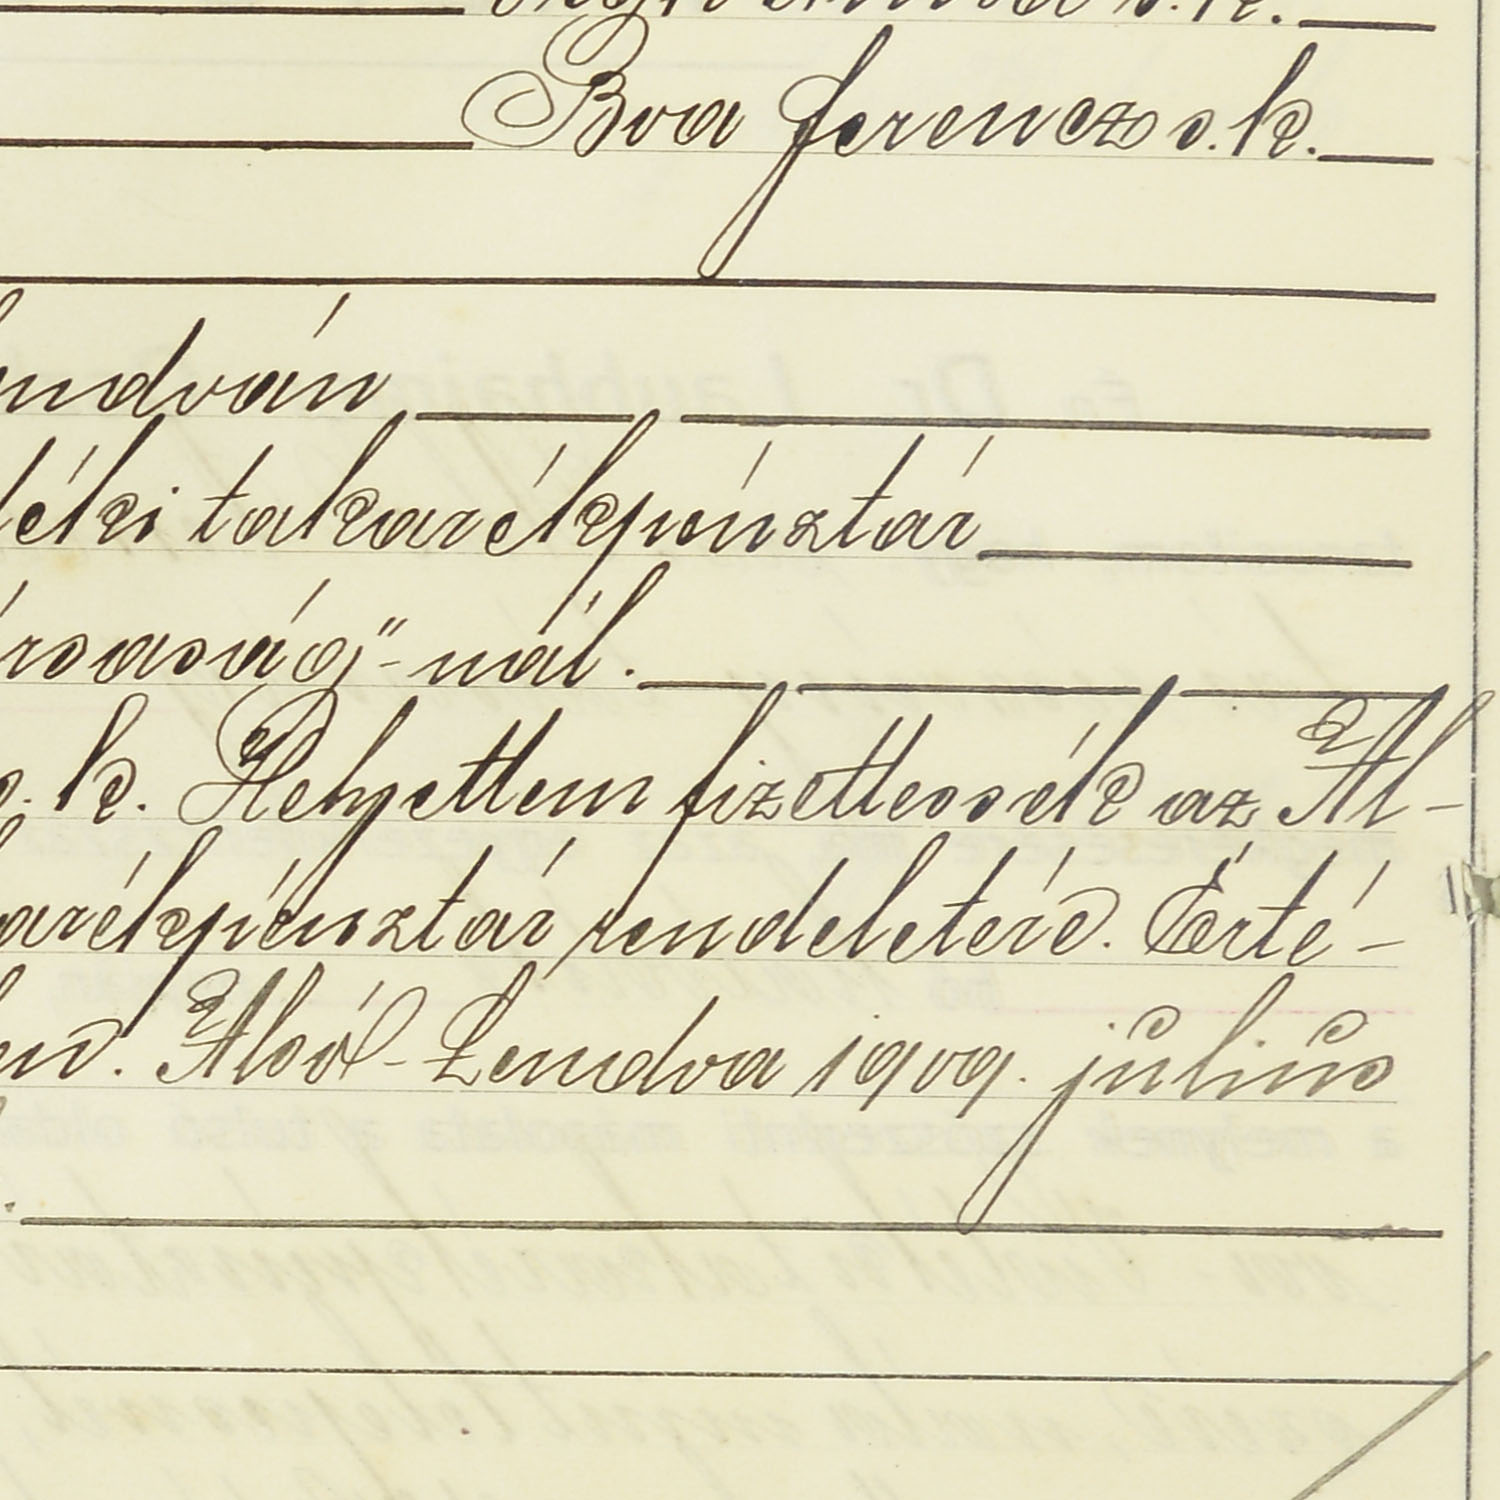 s.k.
Bva Ferencz s.k.
endván
déki takarékpénztár
társaság"-nál.
s.k. Helyettem fizettessék az Al-
arékpénztár rendeletére. Érté-
en. Alsó-Lendva 1909. július